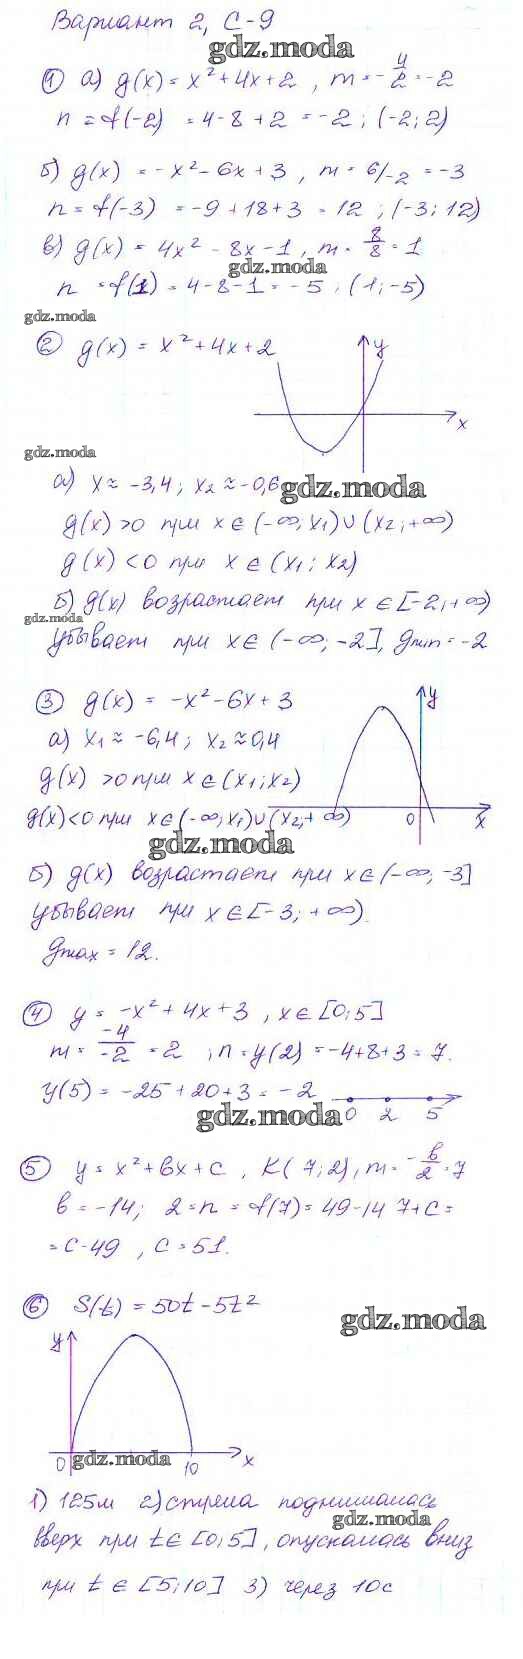 Вариант 2, С-9
gdz.moda
① а) g(x) = x² + 4x + 2 , m = -4/2 = -2
n = f(-2) = 4 - 8 + 2 = -2 ; (-2; 2)
б) g(x) = -x² - 6x + 3 , m = 6/-2 = -3
n = f(-3) = -9 + 18 + 3 = 12 ; (-3; 12)
в) g(x) = 4x² - 8x - 1 , m = 8/8 = 1
gdz.moda
n = f(1) = 4 - 8 - 1 = -5 ; (1; -5)
gdz.moda
② g(x) = x² + 4x + 2
y
x
gdz.moda
а) x ≈ -3,4 ; x₂ ≈ -0,6
gdz.moda
g(x) > 0 при x ∈ (-∞; x₁) ∪ (x₂; +∞)
g(x) < 0 при x ∈ (x₁; x₂)
б) g(x) возрастает при x ∈ [-2; +∞)
gdz.moda
убывает при x ∈ (-∞; -2], gmin = -2
③ g(x) = -x² - 6x + 3
y
а) x₁ ≈ -6,4 ; x₂ ≈ 0,4
g(x) > 0 при x ∈ (x₁; x₂)
g(x) < 0 при x ∈ (-∞; x₁) ∪ (x₂; +∞)
0
x
gdz.moda
б) g(x) возрастает при x ∈ (-∞; -3]
убывает при x ∈ [-3; +∞)
gmax = 12.
④ y = -x² + 4x + 3 , x ∈ [0; 5]
m = -4/-2 = 2 ; n = y(2) = -4 + 8 + 3 = 7.
y(5) = -25 + 20 + 3 = -2
0 2 5
gdz.moda
⑤ y = x² + bx + c , K(7; 2), m = -b/2 = 7
b = -14; 2 = n = f(7) = 49 - 14 7 + c =
= c - 49 , c = 51.
⑥ S(t) = 50t - 5t²
gdz.moda
y
0
gdz.moda
10
x
1) 125м 2) стрела поднималась
gdz.moda
вверх при t ∈ [0; 5], опускалась вниз
при t ∈ [5; 10] 3) через 10с